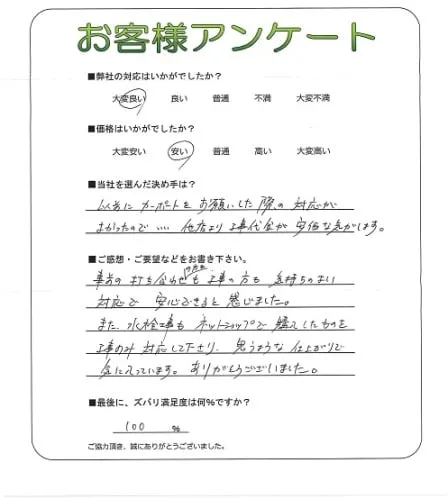 お客様アンケート
■弊社の対応はいかがでしたか？
大変良い 良い 普通 不満 大変不満
■価格はいかがでしたか？
大変安い 安い 普通 高い 大変高い
■当社を選んだ決め手は？
以前に カーポートを お願いした 際の 対応が
よかったので…. 他店より 工事代金が 安価な気がします。
■ご感想・ご要望などをお書き下さい。
事前の 打ち合わせも 工事の方も 気持ちのよい
対応で 安心できると 感じました。
また、水栓工事も ネットショップで 購入したものを
工事のみ 対応して下さり、思うような 仕上がりで
気に入っています。ありがとうございました。
■最後に、ズバリ満足度は何％ですか？
100 ％
ご協力頂き、誠にありがとうございました。